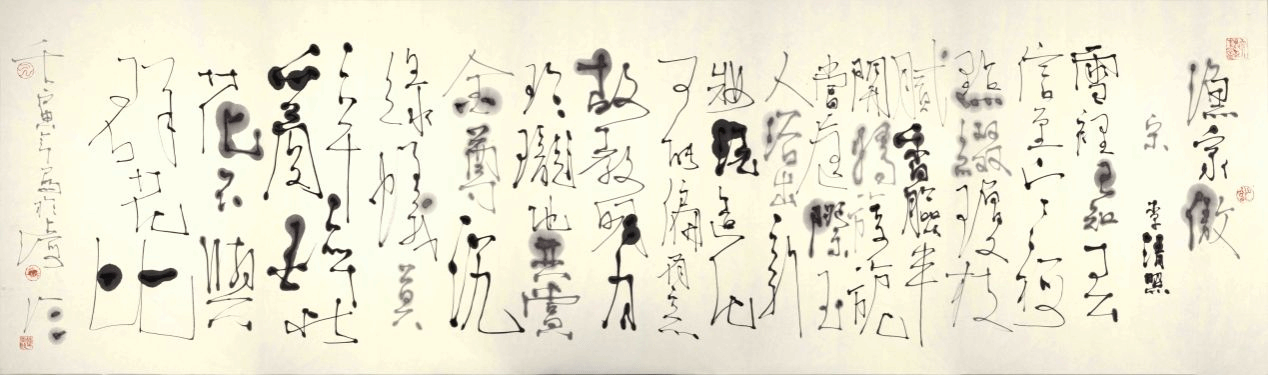 漁家傲
宋 李清照
雪裡已知春
信至寒梅
點綴瓊枝
膩香臉半
開嬌旖旎
當庭際玉
人浴出新
妝洗造化
可能偏有意
故教明月
玲瓏地共賞
金尊沉
綠蟻莫
辭醉此
花不與
群花比
壬寅年於上海